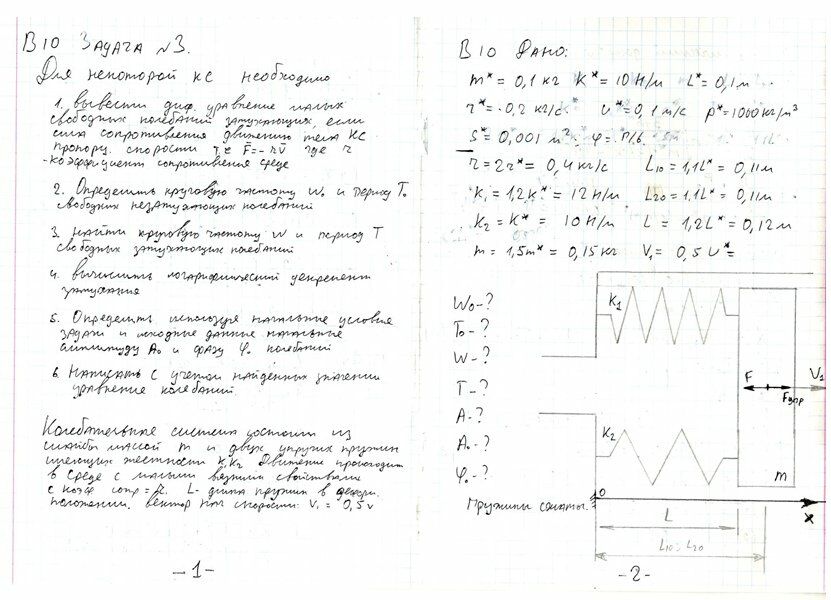 В10 Задача №3.
Для некоторой КС необходимо
1. вывести диф. уравнение малых
свободных колебаний затухающих, если
сила сопротивления движению тела КС
пропорц. скорости т.е F̄=-rv̄ где r
-коэффициент сопротивления среде
2. Определить круговую частоту W₀ и период T₀
свободных незатухающих колебаний
3. найти круговую частоту W и период T
свободных затухающих колебаний
4. вычислить логарифмический декремент
затухания
5. Определить используя начальные условия
задачи и исходные данные начальные
амплитуду A₀ и фазу φ₀ колебаний
6. Написать с учетом найденных значений
уравнение колебаний.
Колебательная система состоит из
массой m и двух упругих пружин
имеющих жесткости K₁K₂ Движение происходит
в среде с малыми вязкими свойствами
с коэф сопр = r. L- длина пружин в
положении. вектор нач скорости: V₁ = 0,5v
-1-
В10 Дано:
m* = 0,1 кг K* = 10 Н/м L* = 0,1 м
r* = 0,2 кг/с v* = 0,1 м/с ρ* = 1000 кг/м³
S* = 0,001 м² φ = π/6
r = 2r* = 0,4 кг/с L₁₀ = 1,1L* = 0,11м
K₁ = 1,2K* = 12 Н/м L₂₀ = 1,1L* = 0,11м
K₂ = K* = 10 Н/м L = 1,2L* = 0,12 м
m = 1,5m* = 0,15 кг V₁ = 0,5 v* =
W₀-?
T₀-?
W-?
T-?
A-?
A₀-?
φ₀-?
K₁
F
Fупр
V₁
K₂
m
Пружины сжаты.
0
x
L
L₁₀=L₂₀
-2-